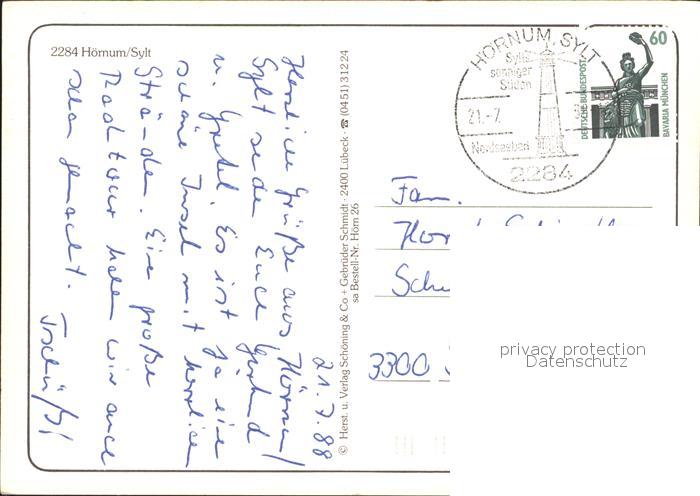 2284 Hörnum/Sylt
21.7.88
Herzliche Grüße aus Hörnum/
Sylt senden Euch Gerhard
u. Gretel. Es ist ja eine
schöne Insel mit herrlichen
Stränden. Eine große
Radtour haben wir auch
schon gemacht. Tschüß!
© Herst. u. Verlag Schöning & Co + Gebrüder Schmidt · 2400 Lübeck · ☎ (04 51) 3 12 24
sa Bestell-Nr. Hörn 26
HÖRNUM, SYLT
Sylts
sonniger
Süden
21.-7.
Nordseebad
2284
60
DEUTSCHE BUNDESPOST
BAVARIA MÜNCHEN
Fam.
3300
privacy protection
Datenschutz